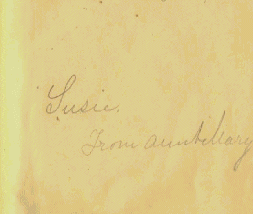 Susie.
From Aunt Mary